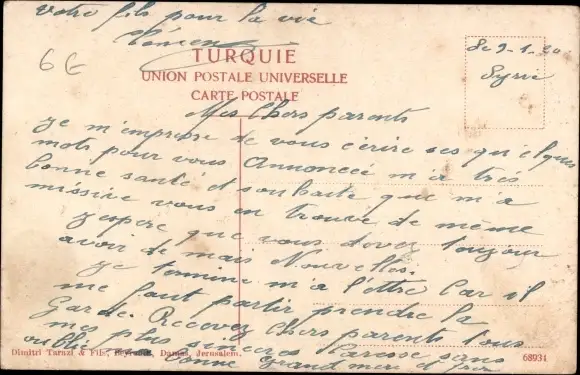 Votre fils pour la vie
6€
TURQUIE
UNION POSTALE UNIVERSELLE
CARTE POSTALE
Le 9-1-20
Syrie
Mes Chers parents
je m'empresse de vous écrire ses quelques
mots pour vous Annoncée m'a très
bonne santé et souhaite que m'a
missive vous en trouve de même
j'espere que vous dovez toujour
avoir de mais Nouvelles.
je termine m'a l'ettre Car il
me faut partir prendre la
Garde. Recevez Chers parents tous
mes plus sincères Caresse sans
oublie bonne grand mère et
Dimitri Tarazi & Fils, Beyrouth, Damas, Jerusalem.
68931